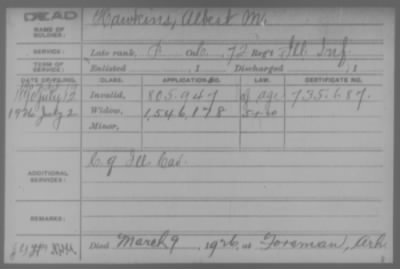 DEAD
NAME OF SOLDIER:
Hawkins, Albert M.
SERVICE:
Late rank, P Co. C, 72 Reg't Ill Inf
TERM OF SERVICE:
Enlisted , 1 Discharged , 1
DATE OF FILING. CLASS. APPLICATION NO. LAW. CERTIFICATE NO.
July 12 Invalid, 805.947 of age 735.687.
1926 July 2 Widow, 1,546,178
Minor,
ADDITIONAL SERVICES:
C. G Ill Cav.
REMARKS:
Died March 9, 1926, at Foreman, Ark.